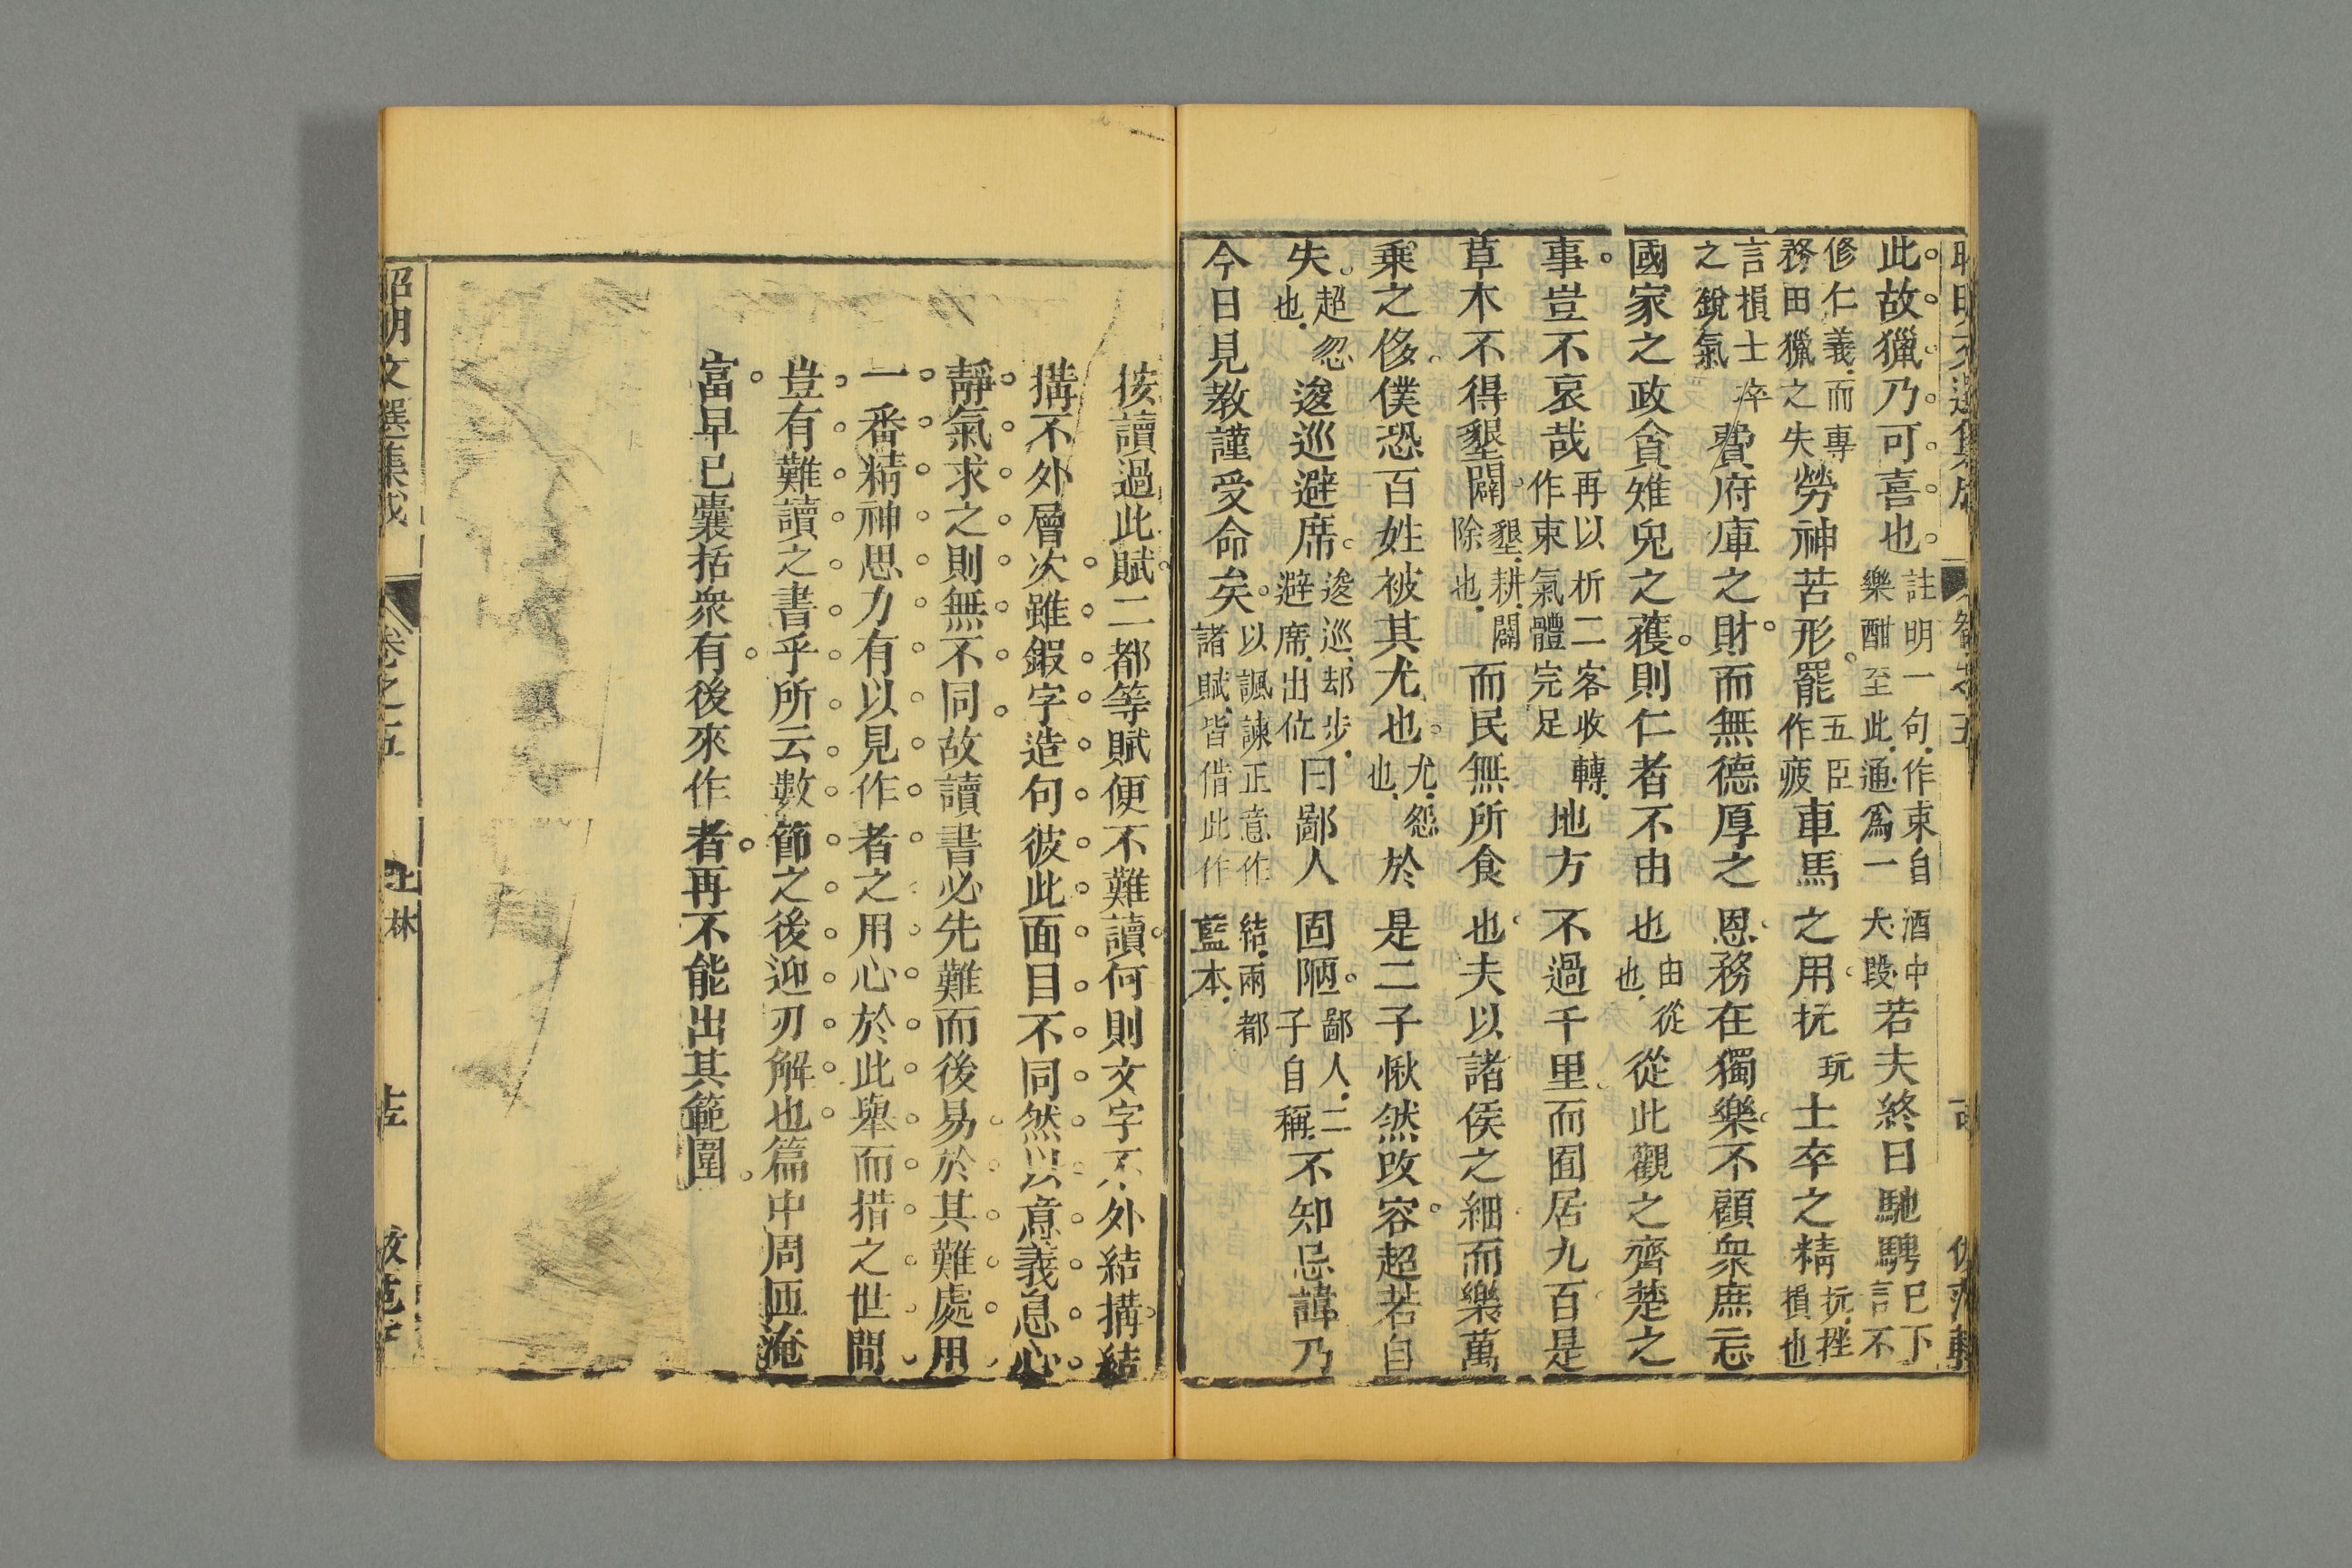 此故獵乃可喜也註明一句作束自酒中樂酣至此通爲一大段若夫終日馳騁已下言不
修仁義而專務田獵之失勞神苦形罷五臣作疲車馬之用抏玩士卒之精抏挫損也
言損士卒之銳氣費府庫之財而無德厚之恩務在獨樂不顧衆庶忘
國家之政貪雉兔之獲則仁者不由也由從也從此觀之齊楚之
事豈不哀哉再以析二客收轉作束氣體完足地方不過千里而囿居九百是
草木不得墾闢墾耕闢除也而民無所食也夫以諸侯之細而樂萬
乘之侈僕恐百姓被其尤也尤怨也於是二子愀然改容超若自
失超忽也逡巡避席逡巡却步避席出位曰鄙人固陋鄙人二子自稱不知忌諱乃
今日見教謹受命矣以諷諫正意作結兩都諸賦皆借此作藍本
按讀過此賦二都等賦便不難讀何則文字不外結搆結
搆不外層次雖鍜字造句彼此面目不同然以意義息心
靜氣求之則無不同故讀書必先難而後易於其難處用
一番精神思力有以見作者之用心於此舉而措之世間
豈有難讀之書乎所云數節之後迎刃解也篇中周匝淹
富早已囊括衆有後來作者再不能出其範圍
昭明文選集成 卷之五 上林